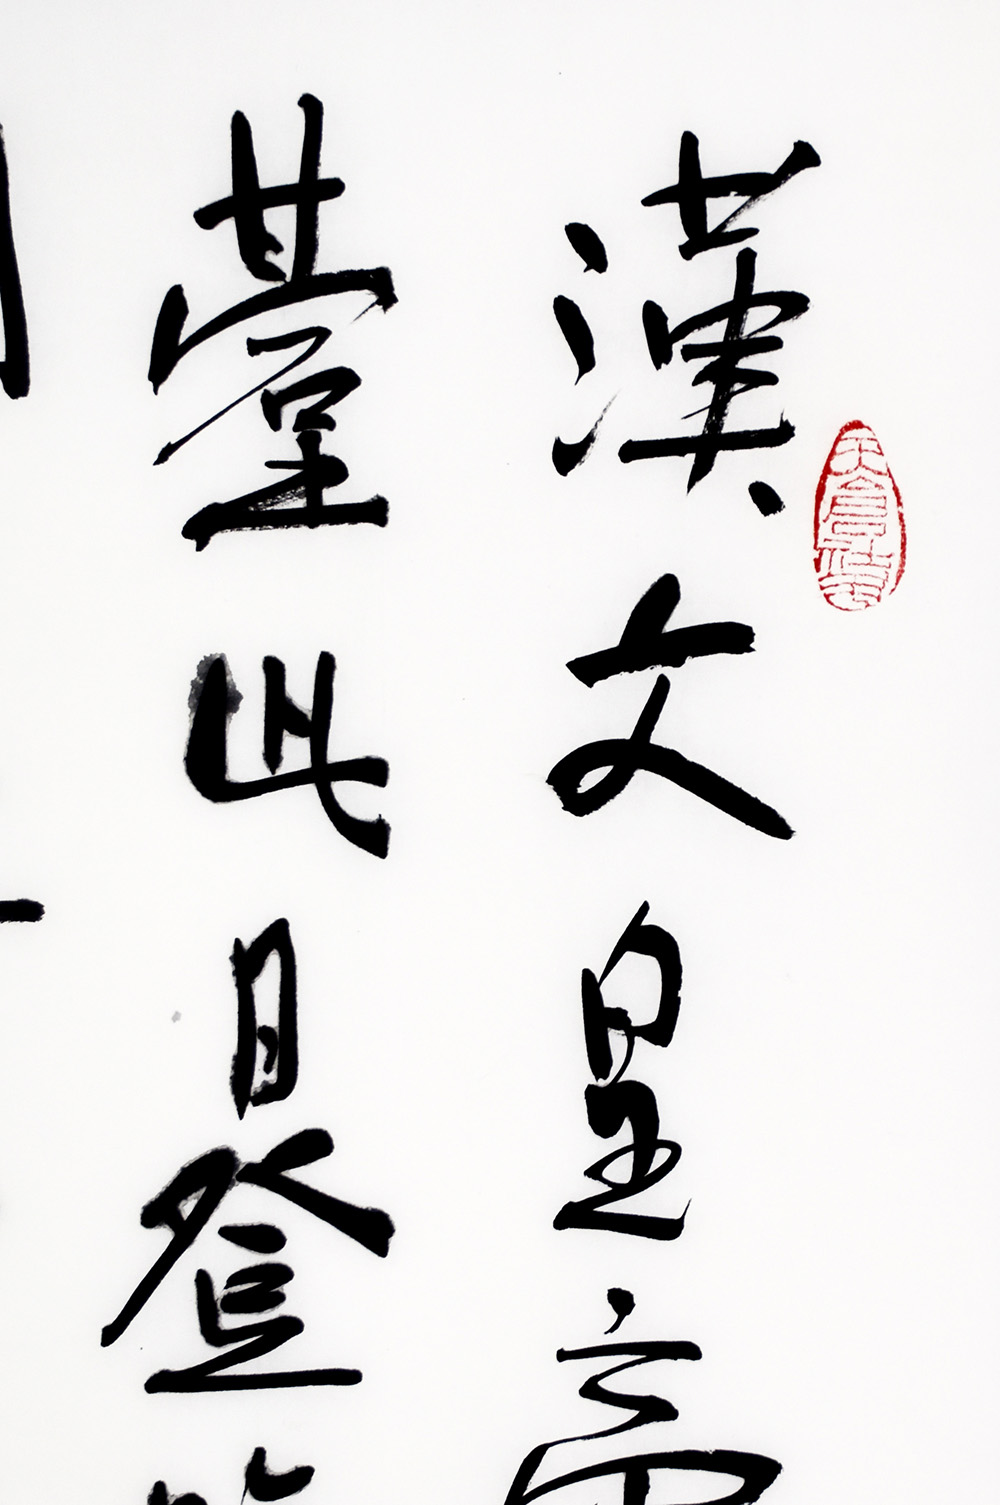 漢文皇帝
臺此日登